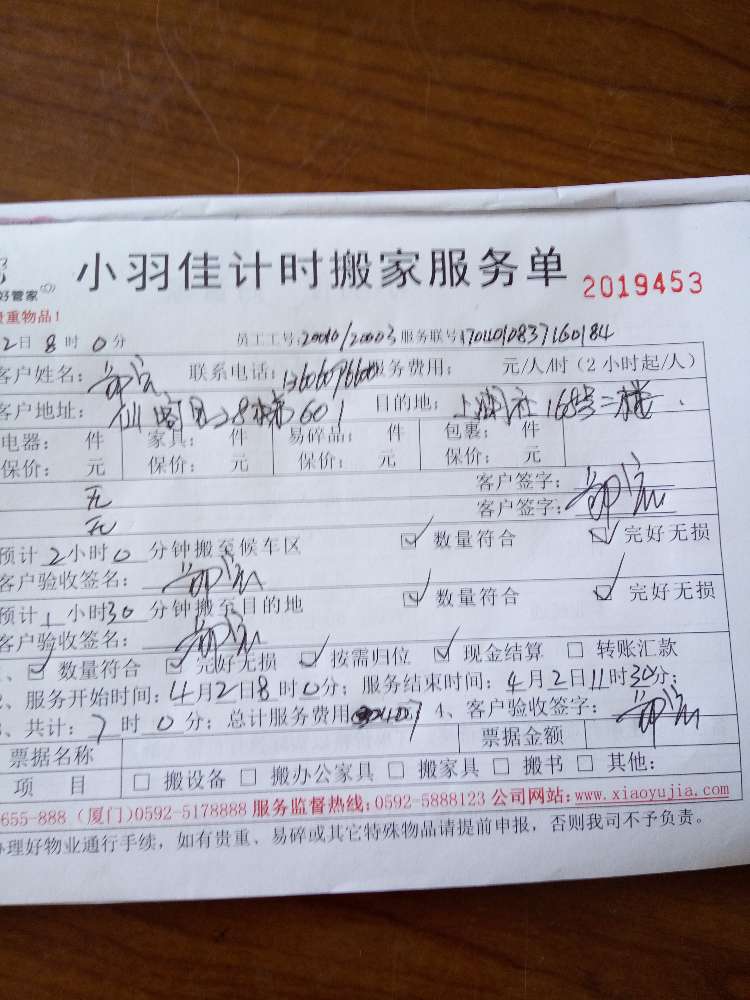 好管家
小羽佳计时搬家服务单 2019453
贵重物品!
2日8时0分 员工工号:20010/20003 服务联号
客户姓名: 联系电话: 服务费用: 元/人/时(2小时起/人)
客户地址: 8梯601 目的地: 168号二楼
电器: 件 家具: 件 易碎品: 件 包裹: 件
保价: 元 保价: 元 保价: 元 保价: 元
无 客户签字:
无 客户签字:
预计2小时0分钟搬至候车区 ☑ 数量符合 ☑ 完好无损
客户验收签名:
预计1小时30分钟搬至目的地 ☑ 数量符合 ☑ 完好无损
客户验收签名:
、☑ 数量符合 ☑ 完好无损 ☑ 按需归位 ☑ 现金结算 □ 转账汇款
、服务开始时间:4月2日8时0分; 服务结束时间:4月2日11时30分;
、共计:7时0分; 总计服务费用 4、客户验收签字:
票据名称 票据金额
项 目 □ 搬设备 □ 搬办公家具 □ 搬家具 □ 搬书 □ 其他:
655-888 (厦门)0592-5178888 服务监督热线:0592-5888123 公司网站:www.xiaoyujia.com
办理好物业通行手续, 如有贵重、易碎或其它特殊物品请提前申报, 否则我司不予负责。